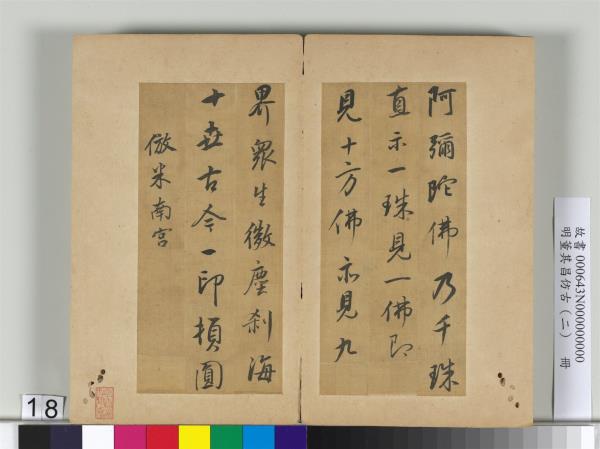 阿彌陀佛乃千珠
直示一珠見一佛即
見十方佛亦見九
界眾生微塵刹海
十世古今一印頓圓
倣米南宮
故書 000643N000000000
明董其昌仿古（二） 冊
18